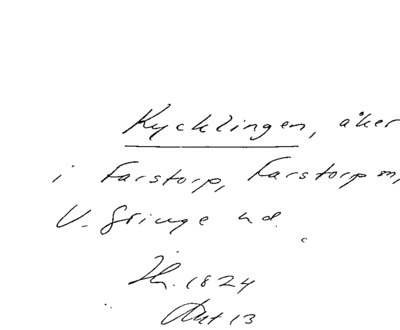 Kycklingen, åker
i Farstorp, Farstorp sn,
V. Göinge hd.
Sk. 1824
Akt 13